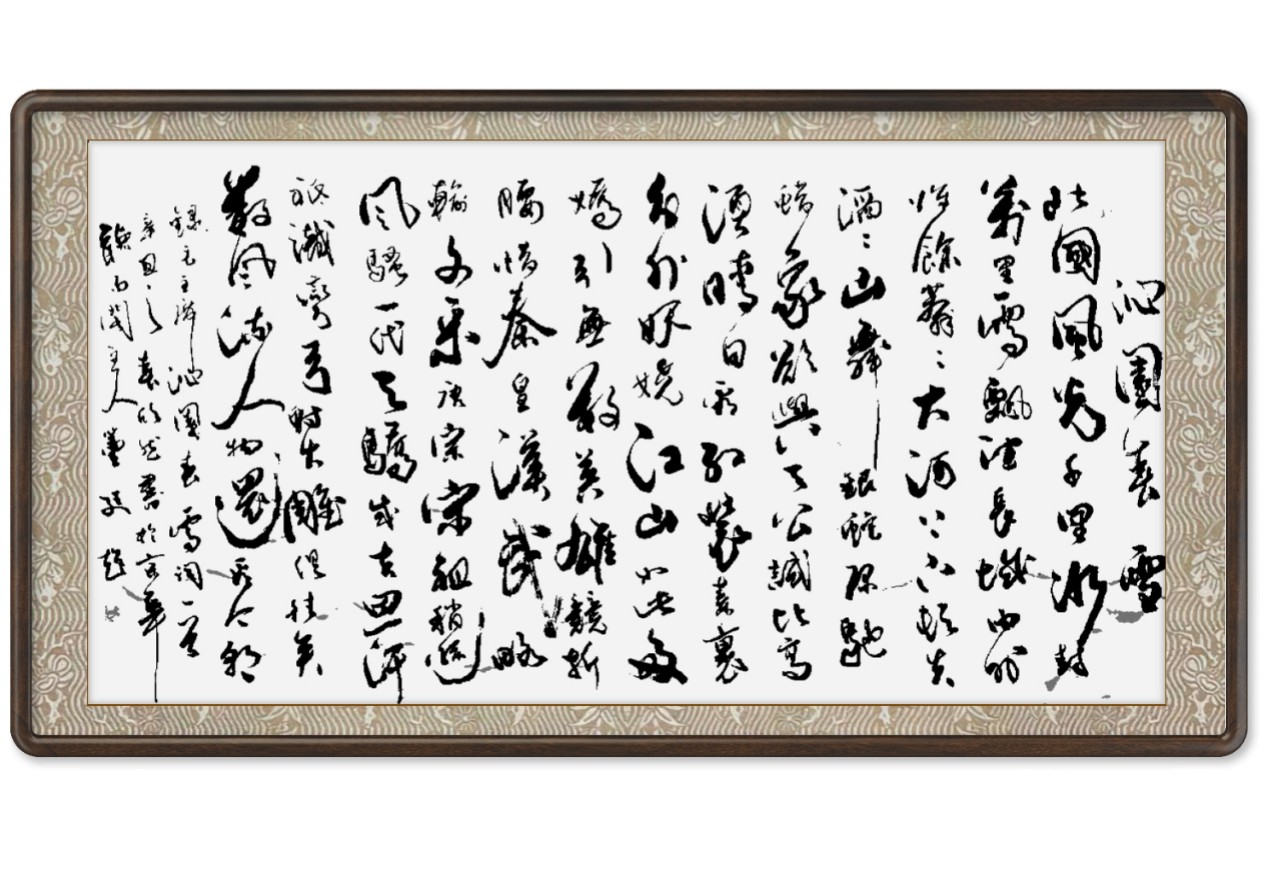 沁園春 雪
北國風光千里冰封
萬里雪飄望長城內外
惟餘莽々大河上下頓失
滔々山舞銀蛇原馳
蠟象欲與天公試比高
須晴日看紅裝素裹
分外妖嬈江山如此多
嬌引無數英雄競折
腰惜秦皇漢武略
輸文采唐宗宋祖稍遜
風騷一代天驕成吉思汗
祇識彎弓射大雕俱往矣
數風流人物還看今朝
錄毛主席沁園春雪詞一首
辛丑之春書於京華
聽雨閣主人